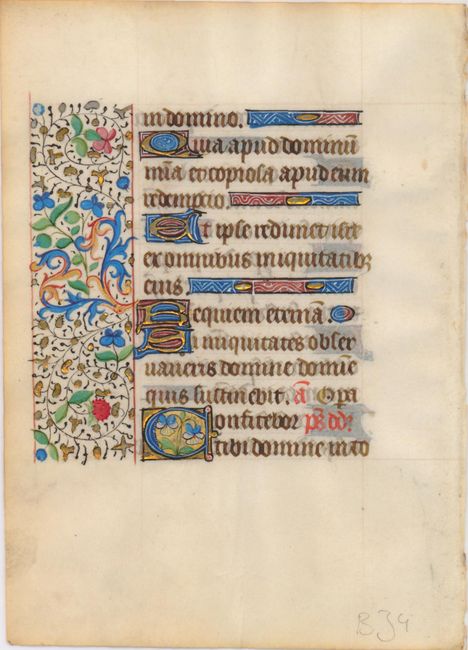 in domino.
Quia apud dominū
mīa et copiosa apud eum
redemptio.
Et ipse redimet isrl
ex omnibus iniquitatibꝫ
eius
Requiem eternā.
Si iniquitates obser
vaueris domine domīe
quis sustinebit. a᷎ Opera
Confitebor ps̄ dd̄.
tibi domine in to
B34